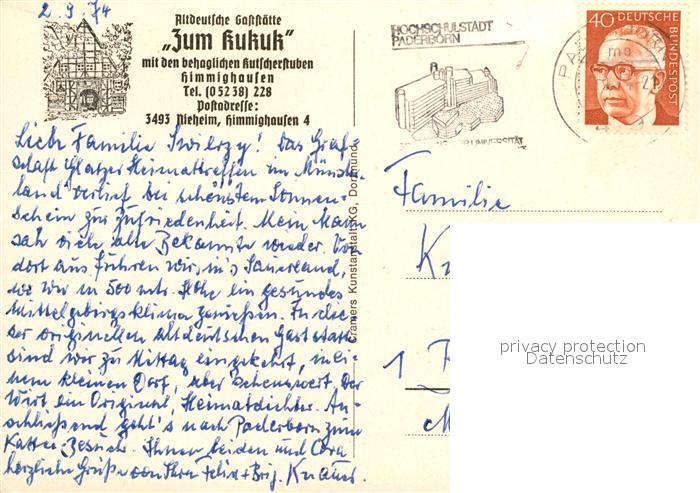 2.9.74
Altdeutsche Gaststätte
„Zum Kukuk"
mit den behaglichen Kutscherstuben
Himmighausen
Tel. (05238) 228
Postadresse:
3493 Nieheim, Himmighausen 4
Liebe Familie ! Das Graf-
schaft Glatzer Heimattreffen im Münster-
land verlief bei schönstem Sonnen-
schein zur Zufriedenheit. Mein Mann
sah viele alte Bekannte wieder. Von
dort aus fuhren wir in's Sauerland,
wo wir in 500 mtr. Höhe ein gesundes
Mittelgebirgsklima genießen. In die-
ser originellen altdeutschen Gaststätte
sind wir zu Mittag eingekehrt, in ei-
nem kleinen Dorf, aber sehenswert. Der
Wirt ein Original, Heimatdichter. An-
schließend geht's nach Paderborn zum
Kaffee-Besuch. Ihnen beiden und Cora
herzliche Grüße von Ihren Felix + Brig.
Cramers Kunstanstalt KG, Dortmund
HOCHSCHULSTADT
PADERBORN
40 DEUTSCHE
BUNDESPOST
Familie
privacy protection
Datenschutz